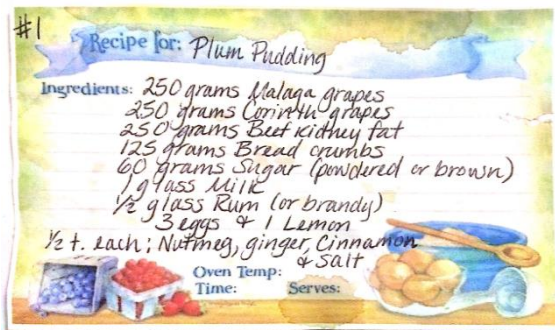 #1
Recipe for: Plum Pudding
Ingredients: 250 grams Malaga grapes
250 grams Corinth grapes
250 grams Beef kidney fat
125 grams Bread crumbs
60 grams Sugar (powdered or brown)
1 glass Milk
1/2 glass Rum (or brandy)
3 eggs & 1 Lemon
1/2 t. each; Nutmeg, ginger, Cinnamon
& salt
Oven Temp:
Time: Serves: